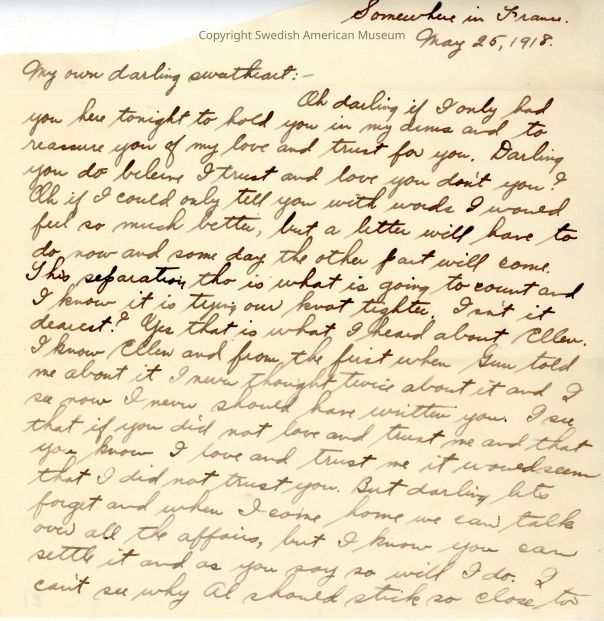 Somewhere in France.
Copyright Swedish American Museum
May 25, 1918.
My own darling sweetheart:-
Oh darling if I only had
you here tonight to hold you in my arms and to
reassure you of my love and trust for you. Darling
you do believe I trust and love you don't you?
Oh if I could only tell you with words I would
feel so much better, but a letter will have to
do now and some day the other part will come.
This separation tho is what is going to count and
I know it is trying our knot tighter. Isn't it
dearest? Yes that is what I heard about Ellen.
I know Ellen and from the first when Gun told
me about it I never thought twice about it and I
see now I never should have written you. I see
that if you did not love and trust me and that
you know I love and trust me it would seem
that I did not trust you. But darling lets
forget and when I come home we can talk
over all the affairs, but I know you can
settle it and as you say so will I do. I
can't see why Al should stick so close to